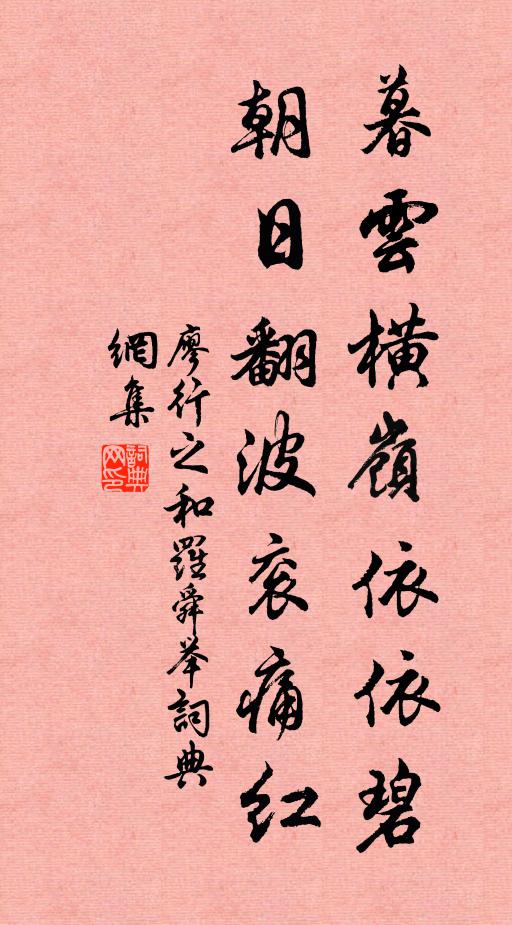 暮雲橫嶺依依碧
朝日翻波衮痛紅
廖行之和羅舜举詞典
網集
詞典
网印